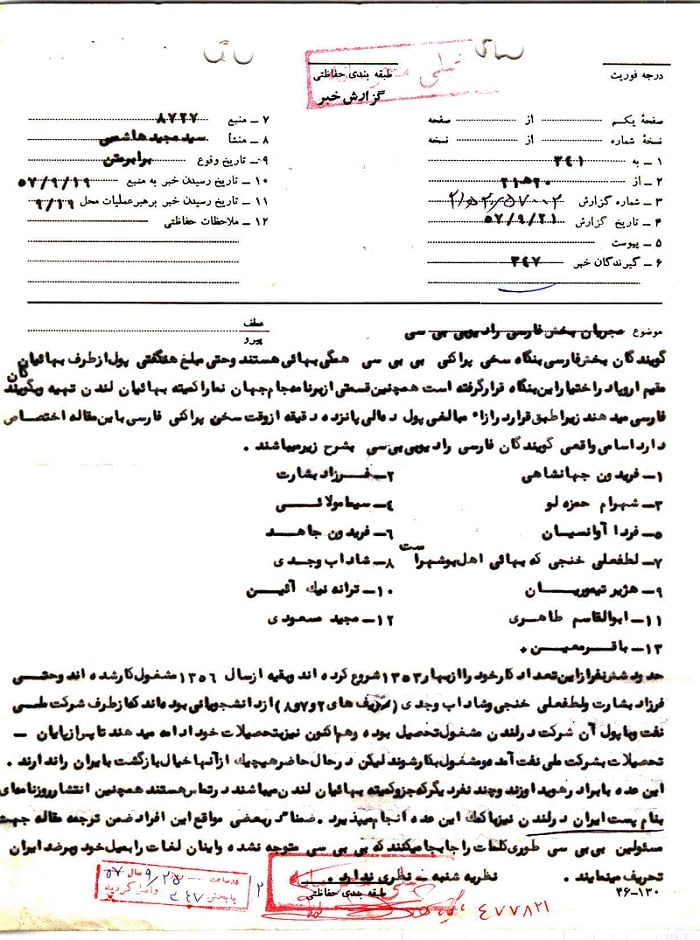 درجه فوریت
طبقه بندی حفاظتی
گزارش خبر
صفحهٔ یکم از صفحه
نسخهٔ شماره از نسخه
۱ـ به ۳۴۱
۲ـ از ۲۰ه۲۱
۳ـ شماره گزارش
۴ـ تاریخ گزارش ۵۷/۹/۲۱
۵ـ پیوست
۶ـ گیرندگان خبر ۳۴۷
۷ـ منبع ۸۷۲۷
۸ـ منشأ سید مجید هاشمی
۹ـ تاریخ وقوع برابر متن
۱۰ـ تاریخ رسیدن خبر به منبع ۵۷/۹/۱۹
۱۱ـ تاریخ رسیدن خبر برهبر عملیات محل ۹/۱۹
۱۲ـ ملاحظات حفاظتی
موضوع مجریان بخش فارسی رادیو بی بی سی
عطف
پیرو
گویندگان بخش فارسی بنگاه سخن پراکنی بی بی سی همگی بهائی هستند و حتی مبلغ هنگفتی پول از طرف بهائیان
مقیم اروپا در اختیار این بنگاه قرار گرفته است همچنین قسمتی از برنامه جام جهان نما را کمیته بهائیان لندن تهیه و بگویندگان
فارسی میدهند زیرا طبق قرارداد ازاء مبالغی پول در مالی پانزده دقیقه از وقت سخن پراکنی فارسی باین مقاله اختصاص
دارد اسامی واقعی گویندگان فارسی رادیو بی بی سی بشرح زیر میباشند .
۱ـ فریدون جهانشاهی ۲ـ فرزاد بشارت
۳ـ شهرام حمزه لو ۴ـ سیما مولائی
۵ـ فردا آوانسیان ۶ـ فریدون جاهد
۷ـ لطفعلی خنجی که بهائی اهل بوشهر است ۸ـ شاداب وجدی
۹ـ هژیر تیموریان ۱۰ـ ترانه نیک آئین
۱۱ـ ابوالقاسم طاهری ۱۲ـ مجید مسعودی
۱۳ـ باقر معین .
حدود شش نفر از این تعداد کار خود را از بهار ۱۳۵۳ شروع کرده اند و بقیه از سال ۱۳۵۶ مشغول کار شده اند و حتی
فرزاد بشارت و لطفعلی خنجی و شاداب وجدی (ردیف های ۲و۷و۸) از دانشجویانی بوده اند که از طرف شرکت ملی
نفت و با پول آن شرکت در لندن مشغول تحصیل بوده و هم اکنون نیز بتحصیلات خود ادامه میدهند تا پس از پایان ـ
تحصیلات بشرکت ملی نفت آمده و مشغول بکار شوند لیکن در حال حاضر هیچیک از آنها خیال بازگشت با ایران را ندارند .
این عده با برادر هویدا و زند و چند نفر دیگر که جزو کمیته بهائیان لندن میباشند در تماس هستند همچنین انتشار روزنامه ای
بنام پست ایران در لندن نیز با کمک این عده انجام میپذیرد . ضمنا در بعضی مواقع این افراد ضمن ترجمه مقاله جهت
مسئولین بی بی سی طوری کلمات را جابجا میکنند که بی بی سی متوجه نشده و اینان لغات را بمیل خود و بر ضد ایران
تحریف مینمایند . نظریه شنبه ـ نظری ندارد .
طبقه بندی حفاظتی
۴۶-۱۳۰
۴۷۷۸۲۱